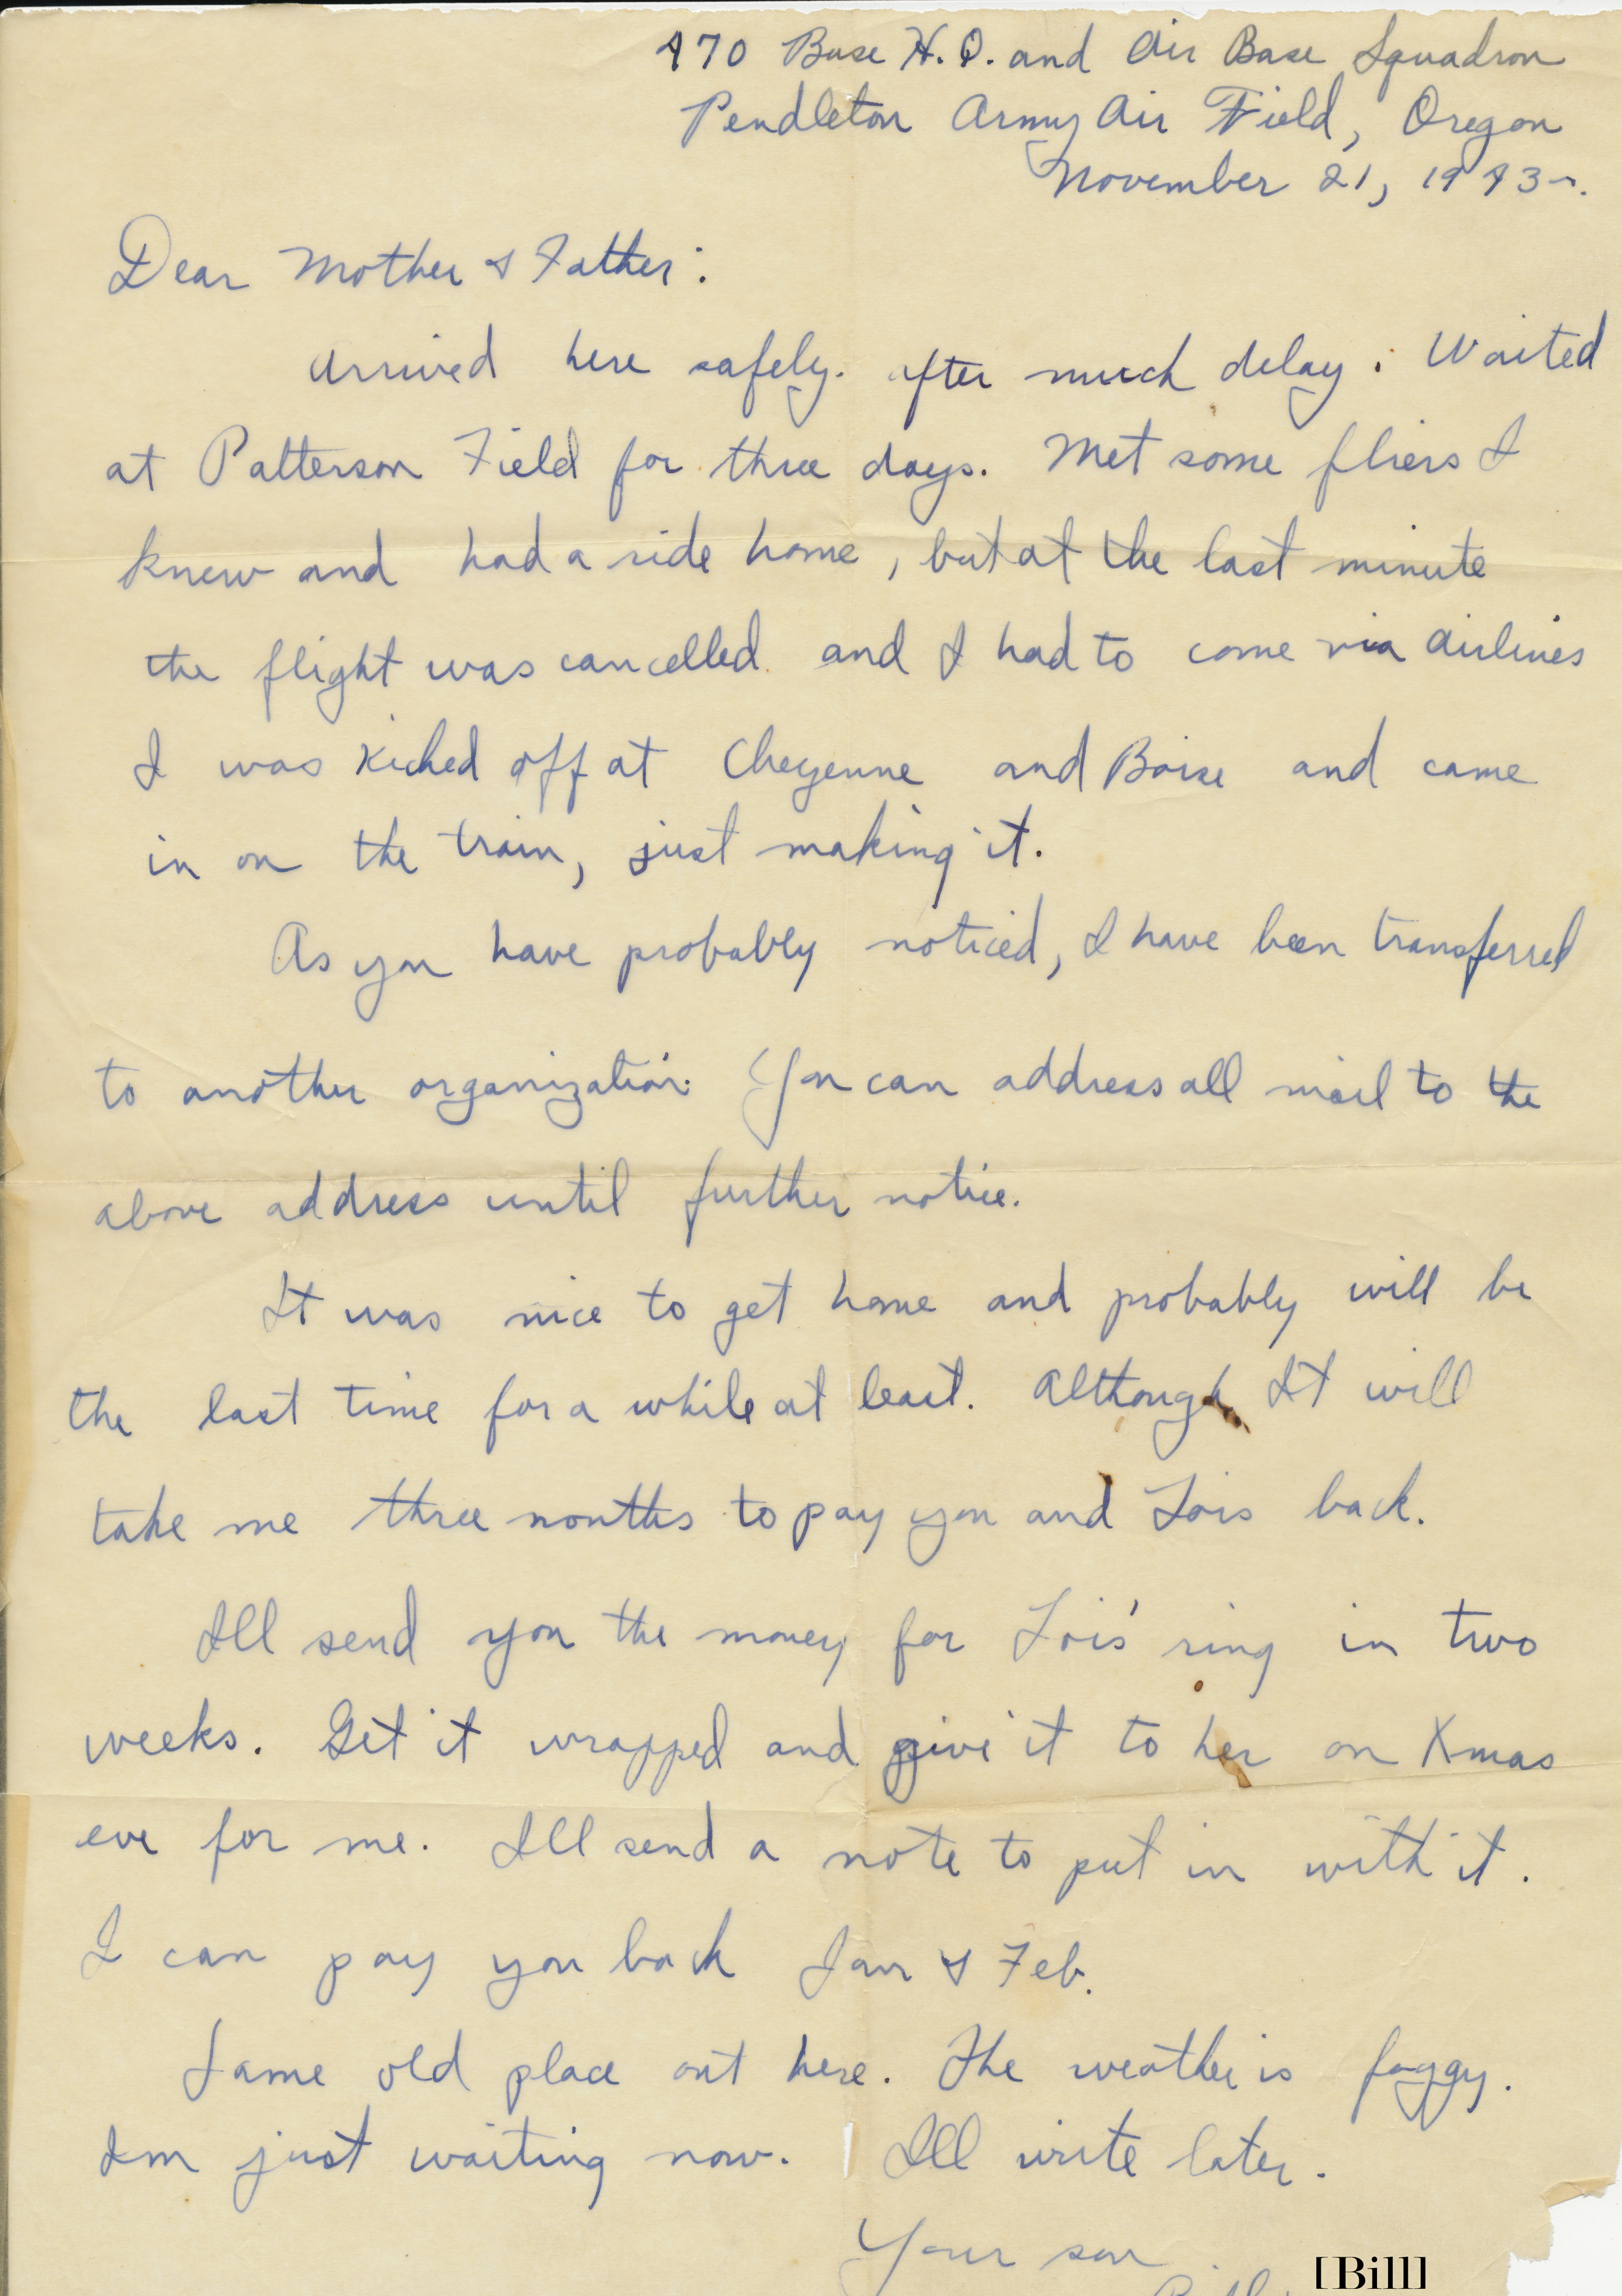 470 Base H.Q. and Air Base Squadron
Pendleton Army Air Field, Oregon
November 21, 1943.
Dear Mother & Father:
Arrived here safely. after much delay. Waited
at Patterson Field for three days. Met some fliers I
knew and had a ride home, but at the last minute
the flight was cancelled. and I had to come via airlines
I was kicked off at Cheyenne and Boise and came
in on the train, just making it.
As you have probably noticed, I have been transferred
to another organization. You can address all mail to the
above address until further notice.
It was nice to get home and probably will be
the last time for a while at least. Although It will
take me three months to pay you and Lois back.
Ill send you the money for Lois' ring in two
weeks. Get it wrapped and give it to her on Xmas
eve for me. Ill send a note to put in with it.
I can pay you back Jan & Feb.
Same old place out here. The weather is foggy.
Im just waiting now. Ill write later.
Your son
[Bill]